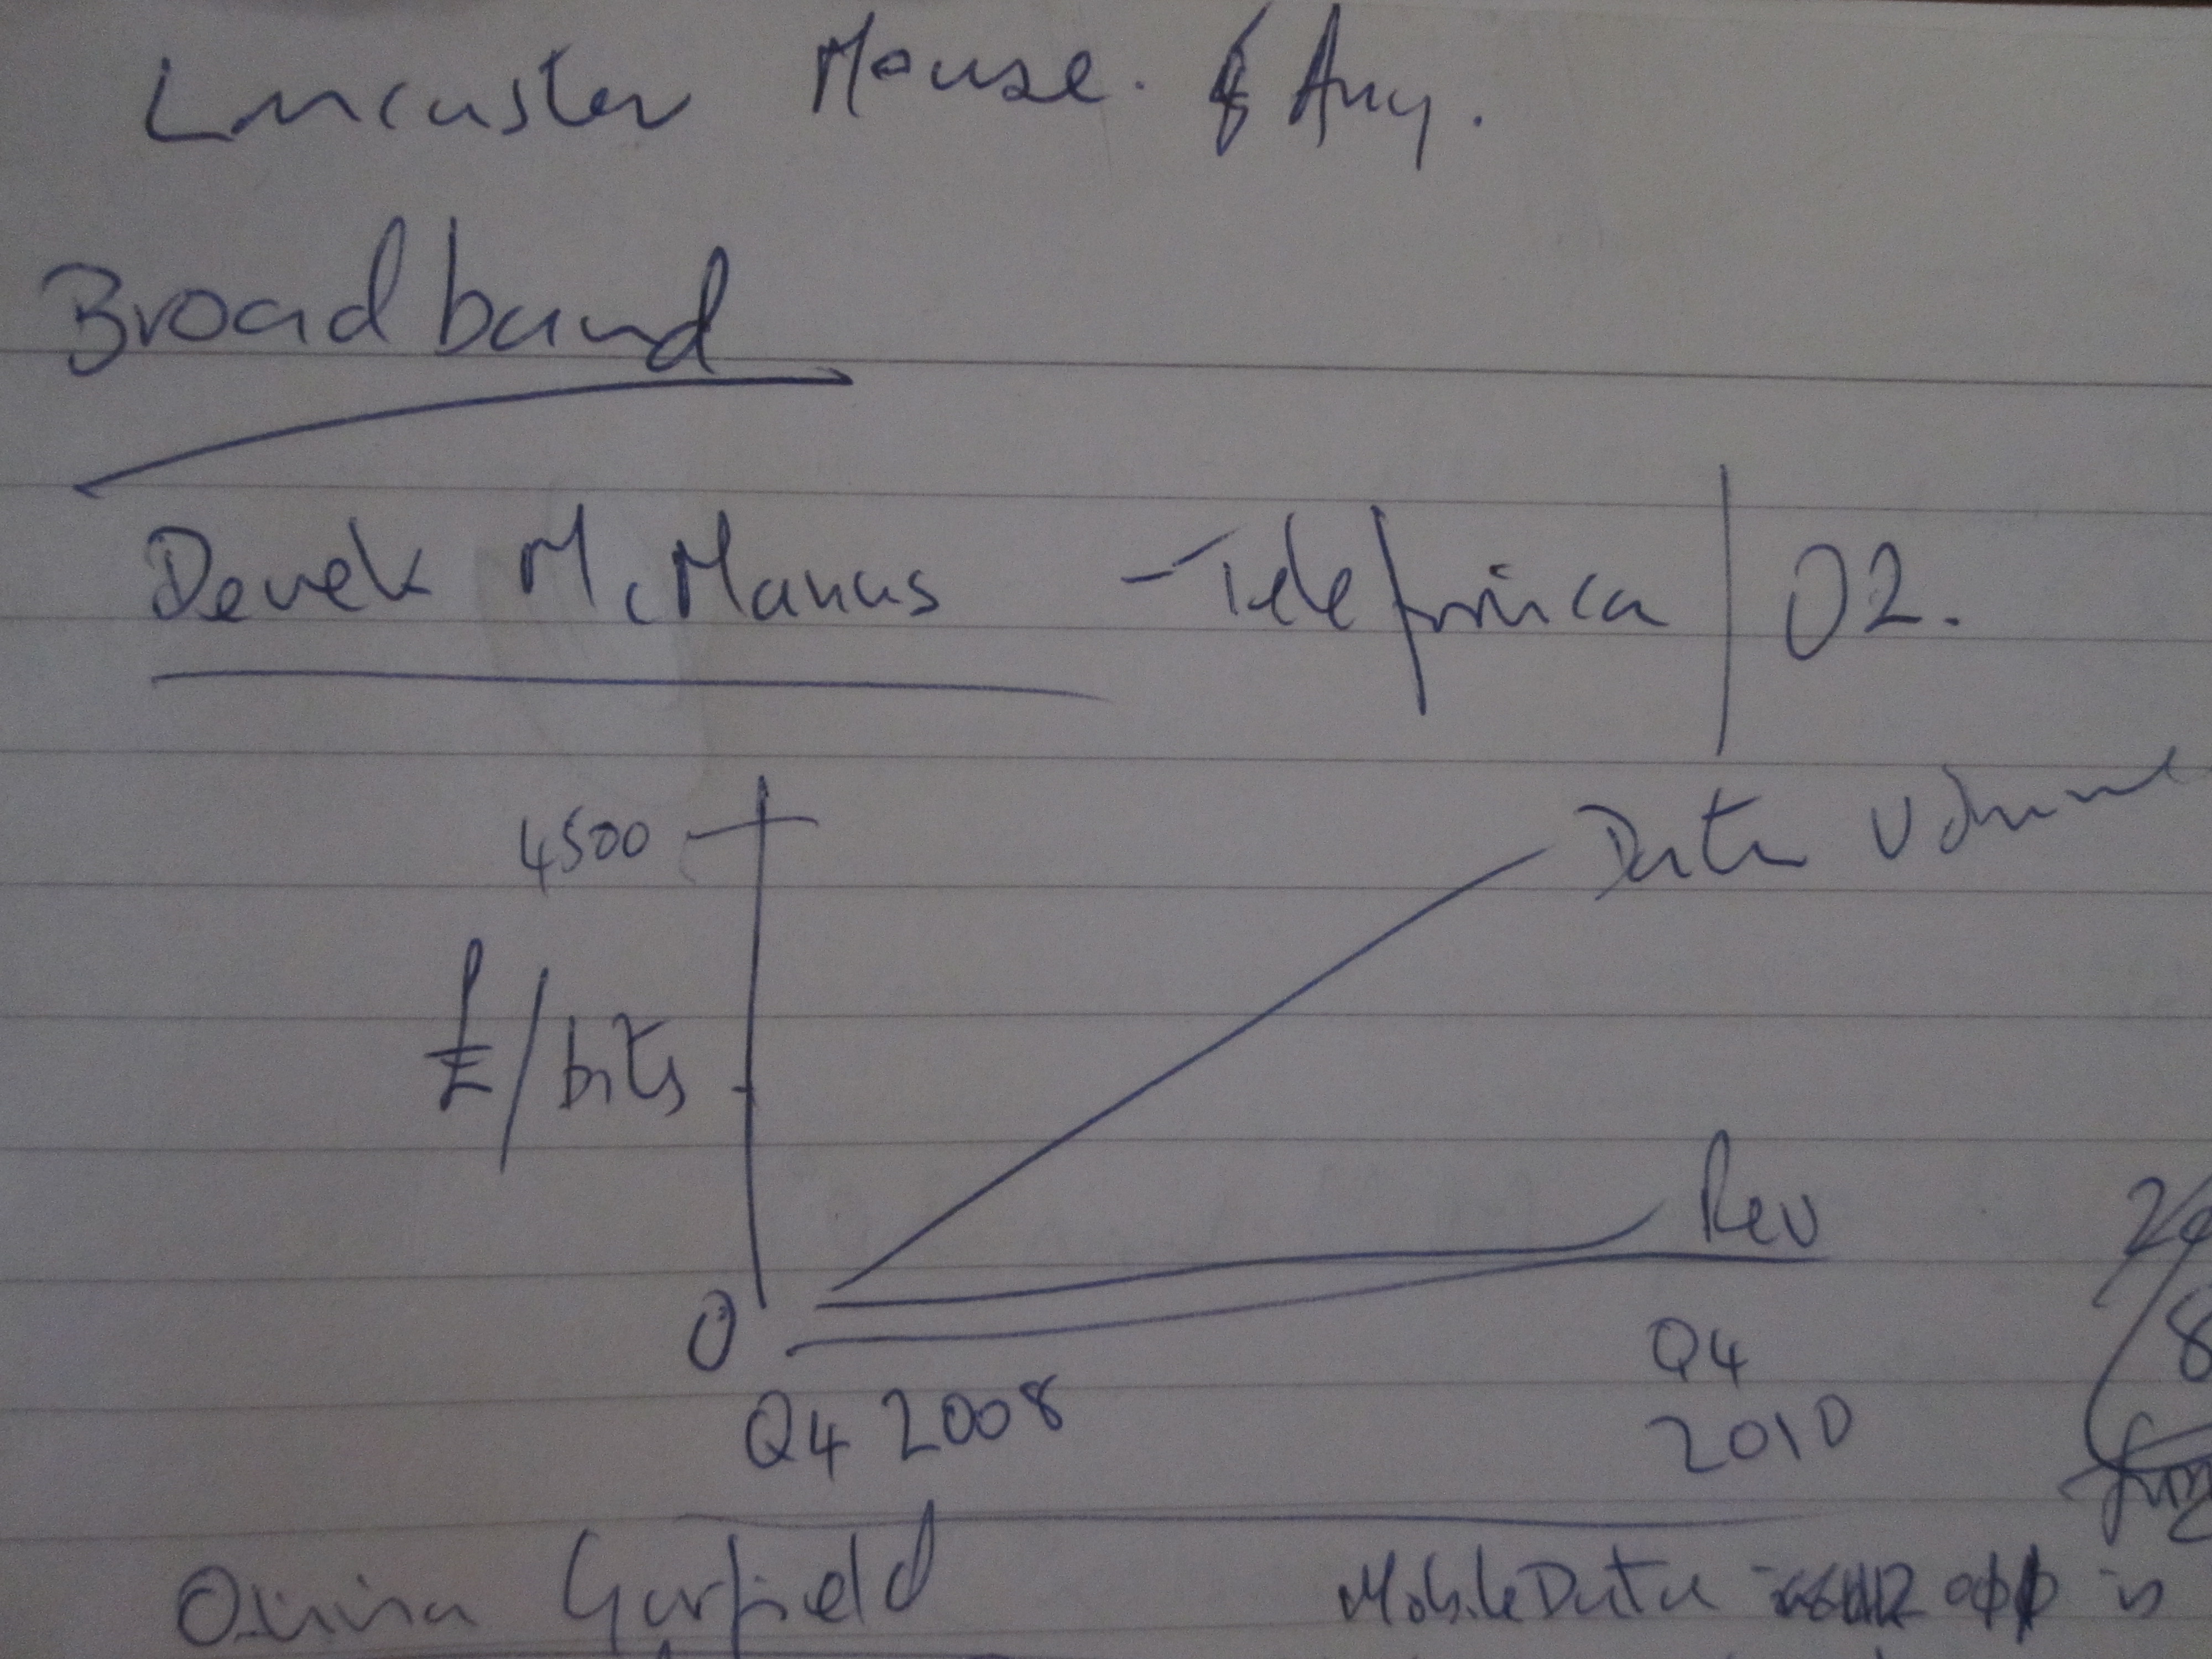 Lancaster House. Aug.
Broadband
Derek McManus - Telefónica | O2.
4500
Data Volume
£/bits
Rev
0
Q4 2008
Q4
2010
Garfield
Mobile Data app is